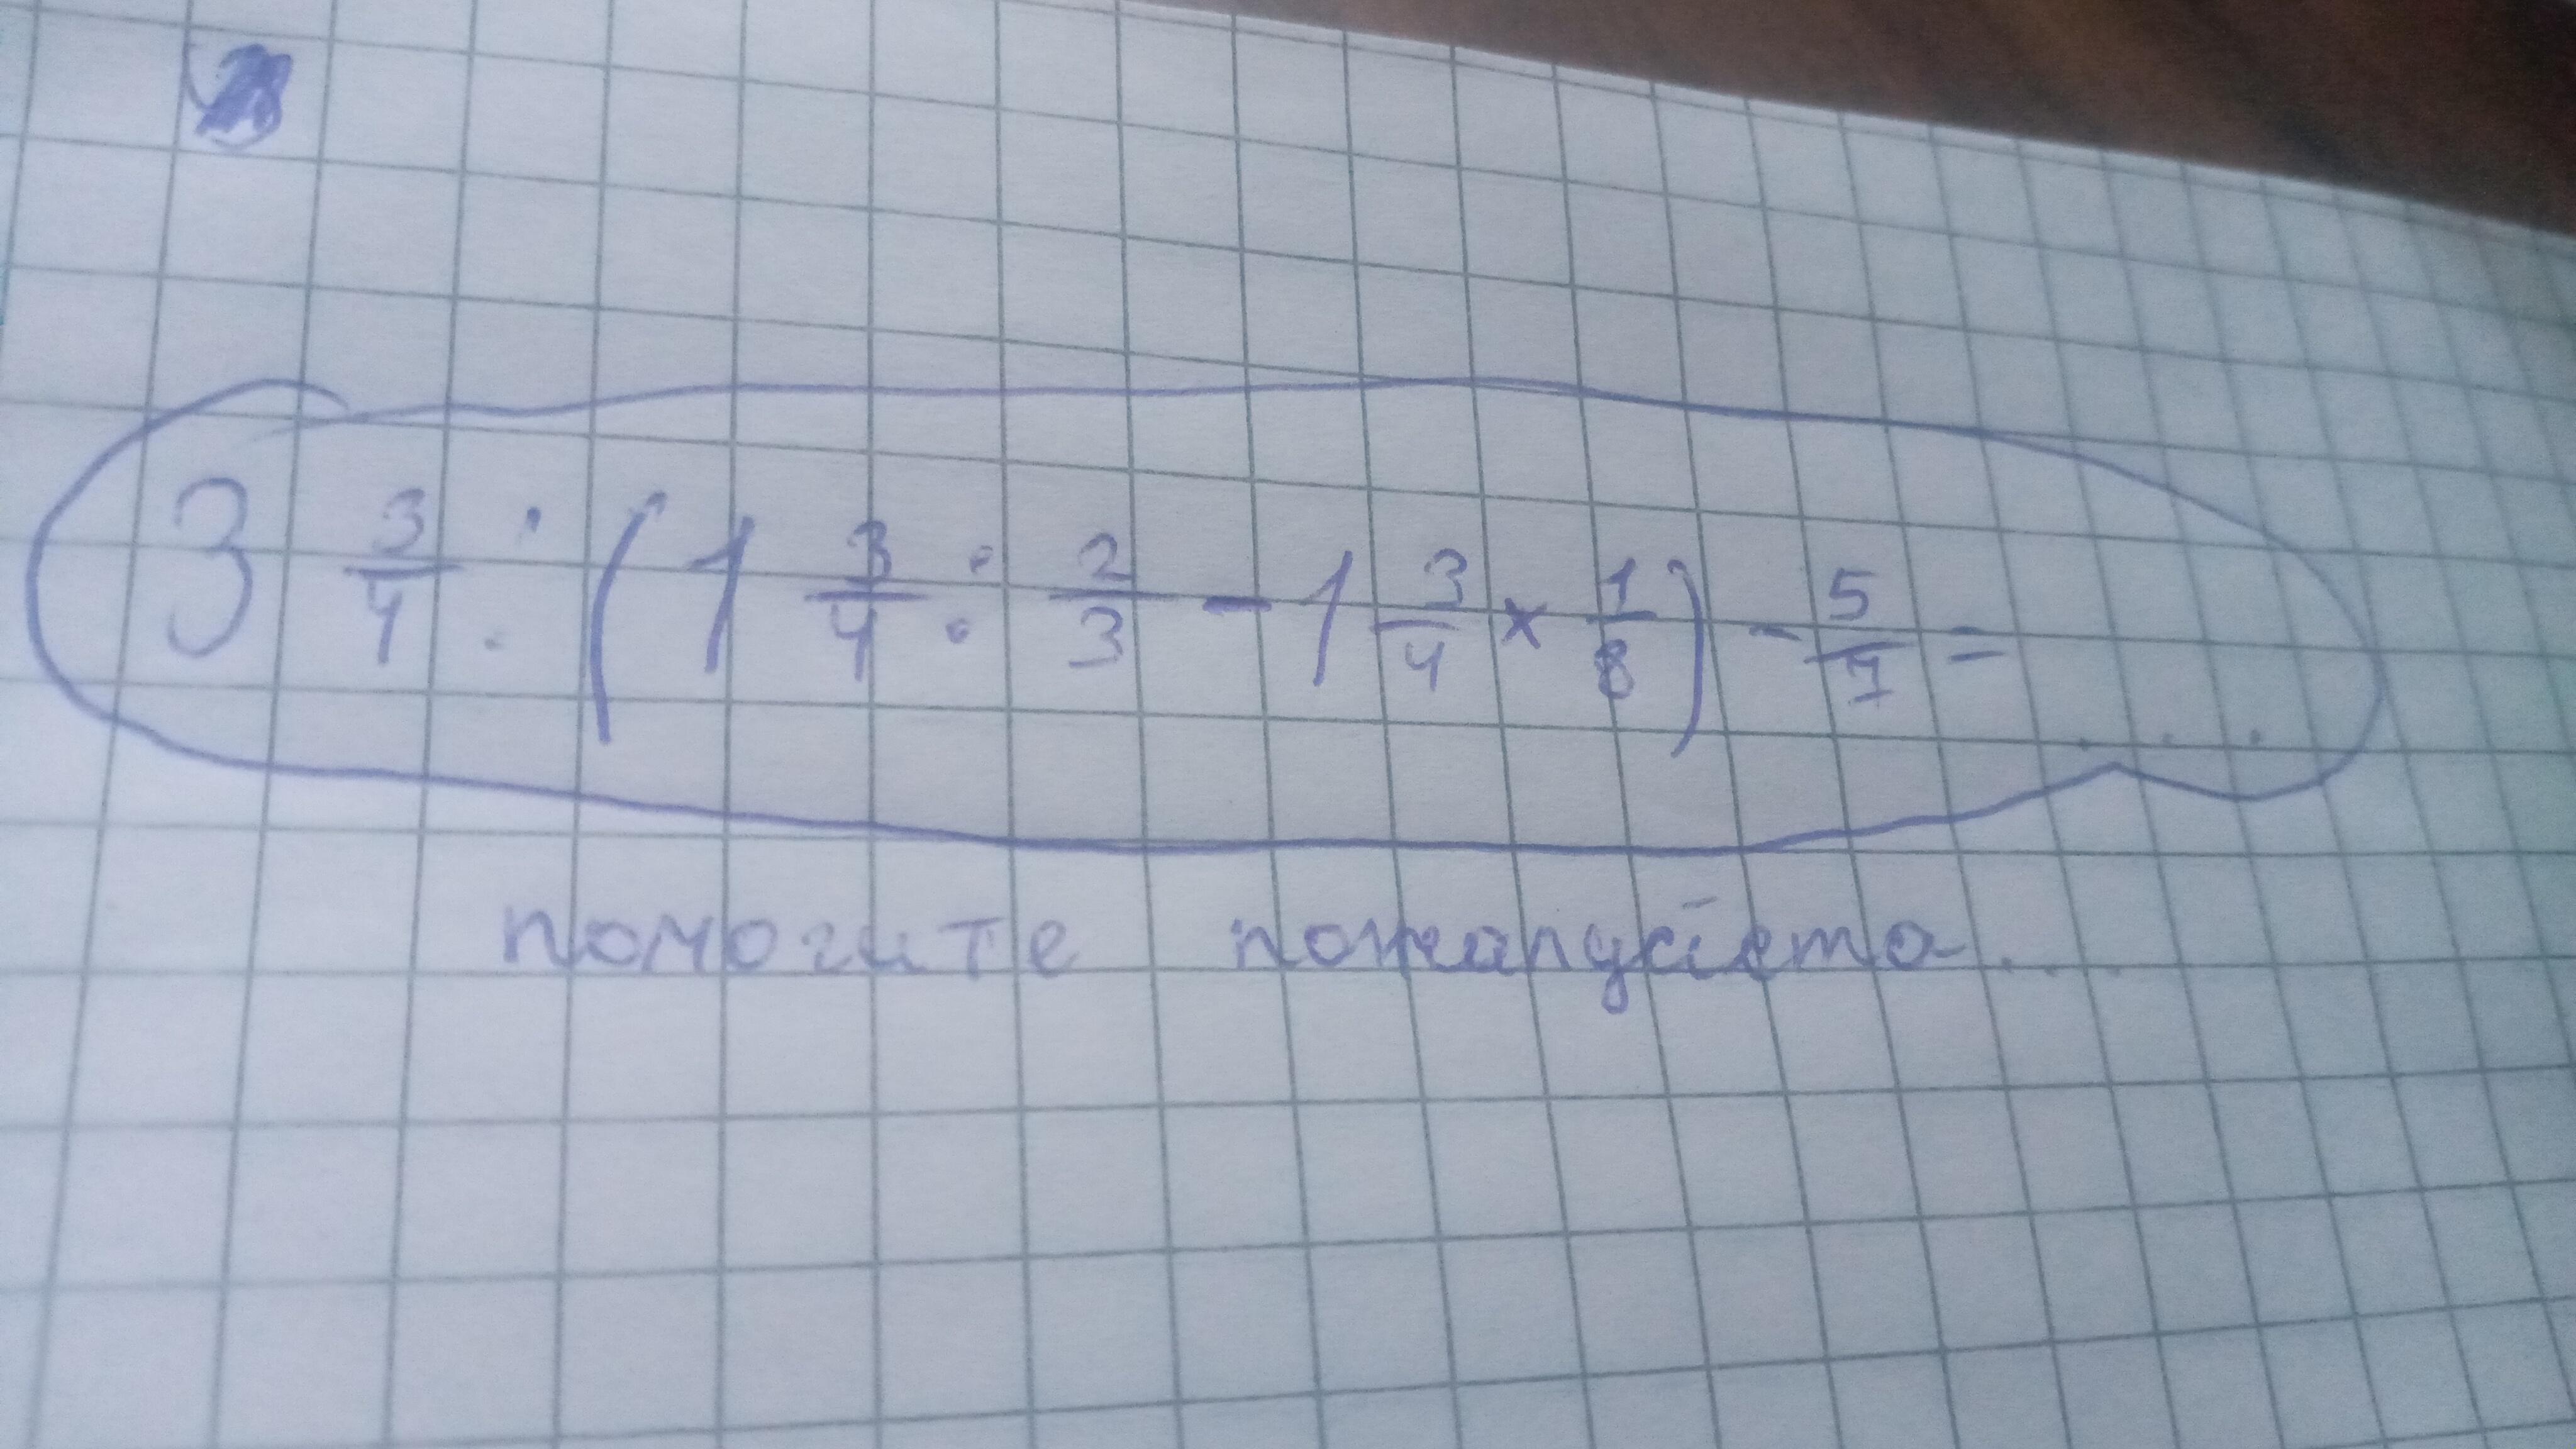 3 3/4 : (1 3/4 : 2/3 - 1 3/4 × 1/8) - 5/7 = ...
помогите пожалуйста....